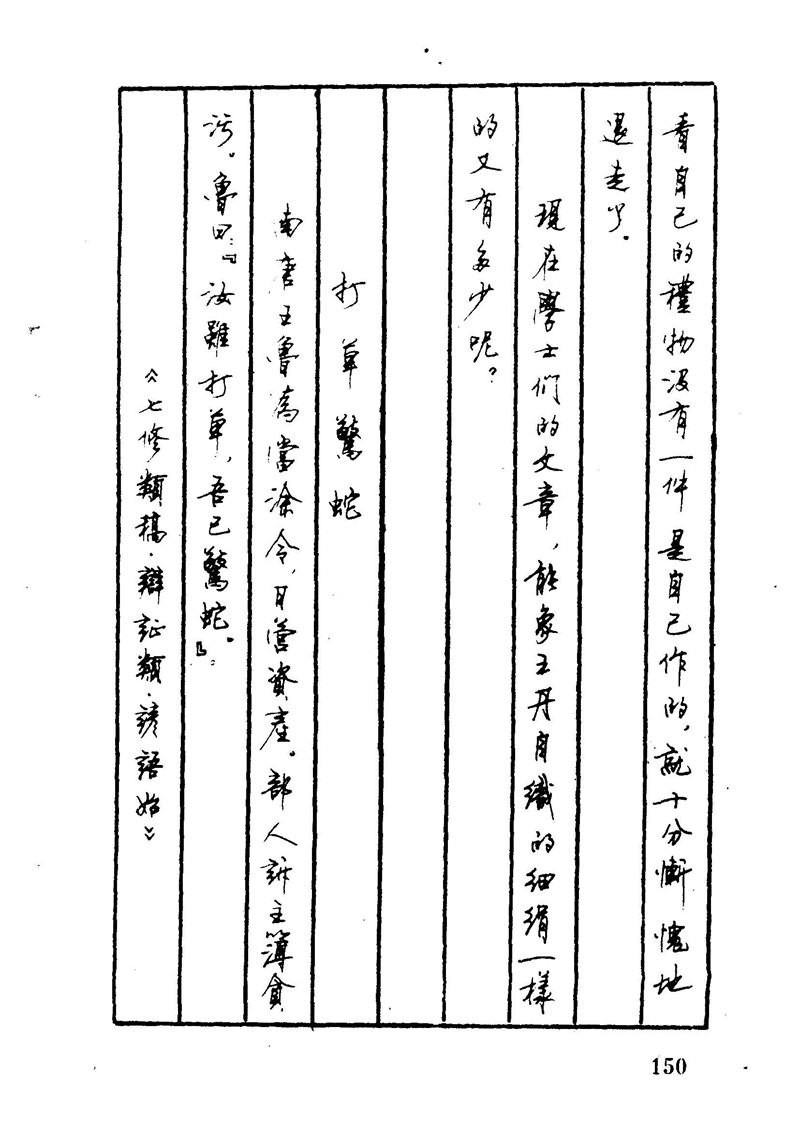 看自己的禮物沒有一件是自己作的，就十分慚愧地
退走了。
現在學士们的文章，能象王丹自織的细絹一樣
的又有多少呢？
打草驚蛇
南唐王魯為當涂令，日營資產。部人訴主簿貪
污。魯曰：『汝雖打草，吾已驚蛇。』：
《七修類稿·辯証類·諺語始》
150